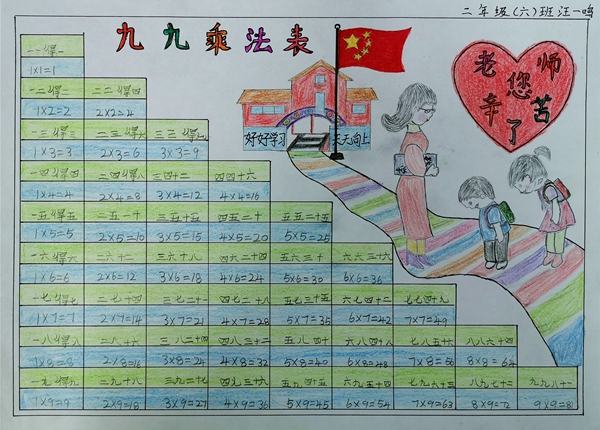 二年级(六)班汪一鸣
九九乘法表
老师
您
辛苦
了
好好学习 天天向上
一一得一
1×1=1
一二得二 二二得四
1×2=2 2×2=4
一三得三 二三得六 三三得九
1×3=3 2×3=6 3×3=9
一四得四 二四得八 三四十二 四四十六
1×4=4 2×4=8 3×4=12 4×4=16
一五得五 二五一十 三五十五 四五二十 五五二十五
1×5=5 2×5=10 3×5=15 4×5=20 5×5=25
一六得六 二六十二 三六十八 四六二十四 五六三十 六六三十六
1×6=6 2×6=12 3×6=18 4×6=24 5×6=30 6×6=36
一七得七 二七十四 三七二十一 四七二十八 五七三十五 六七四十二 七七四十九
1×7=7 2×7=14 3×7=21 4×7=28 5×7=35 6×7=42 7×7=49
一八得八 二八十六 三八二十四 四八三十二 五八四十 六八四十八 七八五十六 八八六十四
1×8=8 2×8=16 3×8=24 4×8=32 5×8=40 6×8=48 7×8=56 8×8=64
一九得九 二九十八 三九二十七 四九三十六 五九四十五 六九五十四 七九六十三 八九七十二 九九八十一
1×9=9 2×9=18 3×9=27 4×9=36 5×9=45 6×9=54 7×9=63 8×9=72 9×9=81